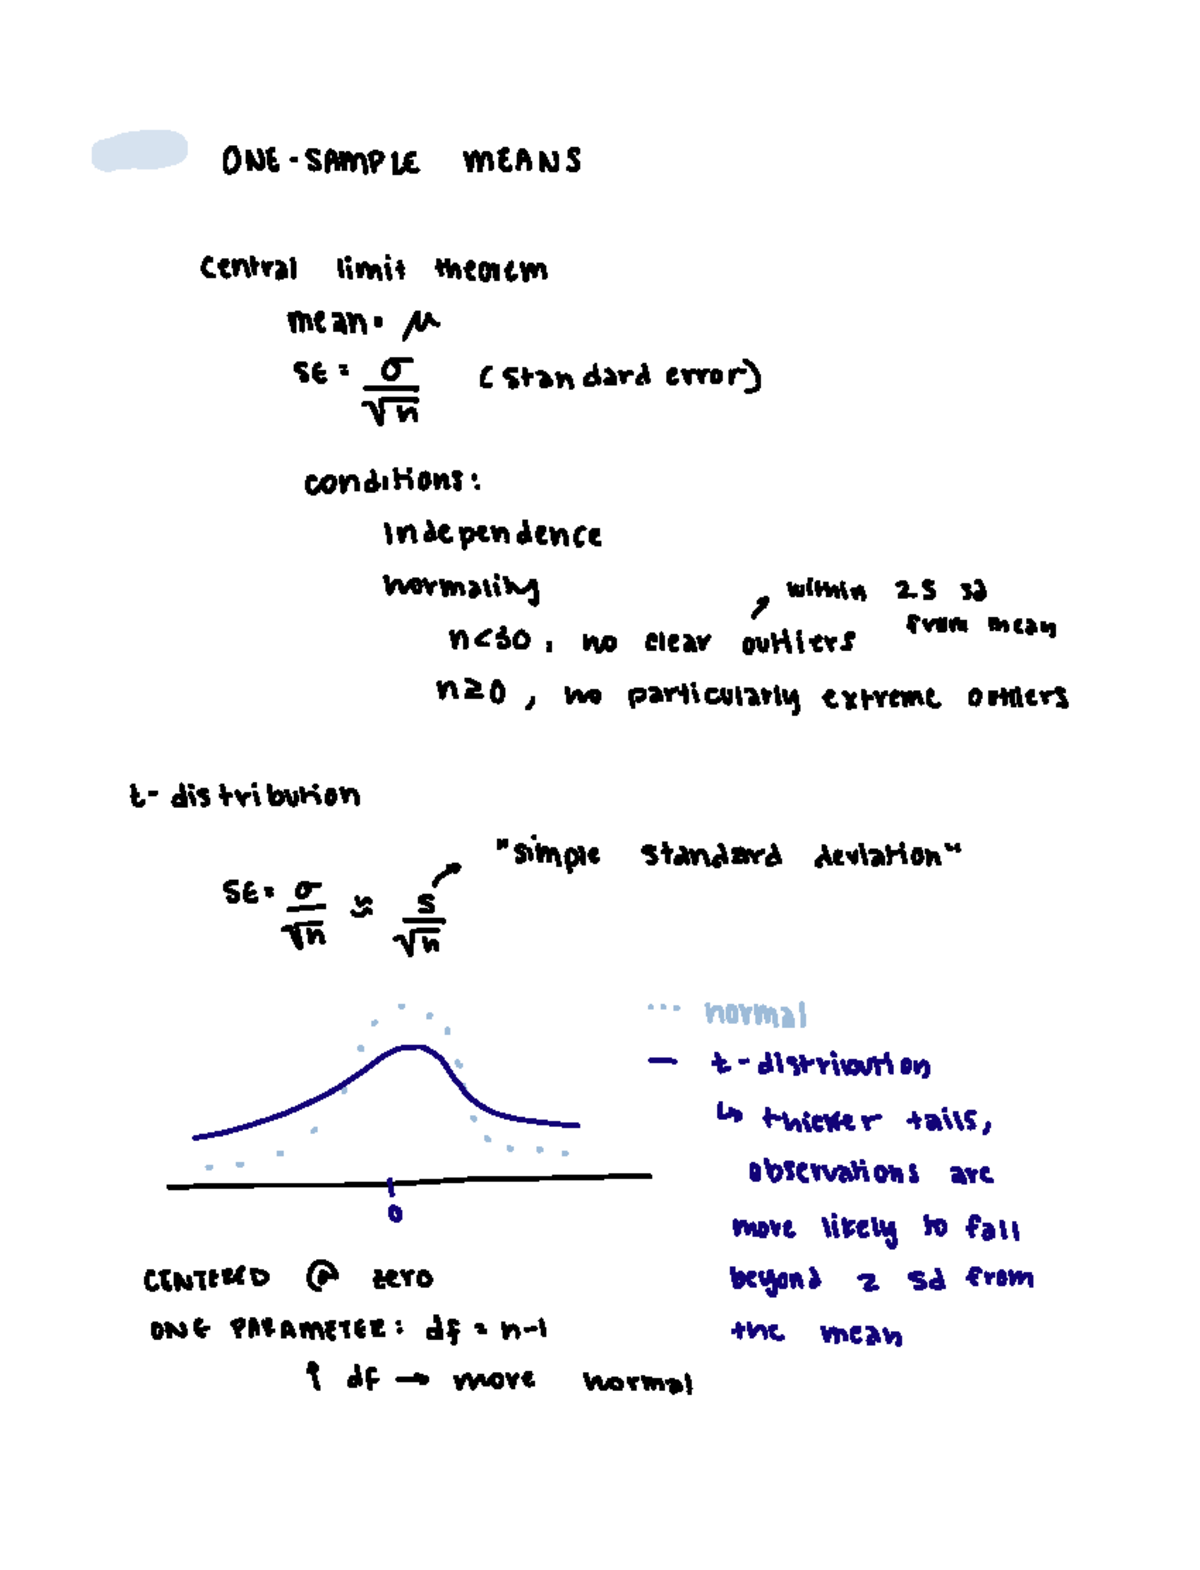 ONE-SAMPLE MEANS
Central limit theorem
mean = μ
SE = σ/√n (standard error)
conditions:
Independence
normality
within 2.5 sd
from mean
n<30, no clear outliers
n≥0, no particularly extreme outliers
t-distribution
"simple standard deviation"
SE = σ/√n ≈ s/√n
··· normal
— t-distribution
↳ thicker tails,
observations are
more likely to fall
beyond 2 sd from
the mean
0
CENTERED @ zero
ONE PARAMETER: df = n-1
↑ df → more normal